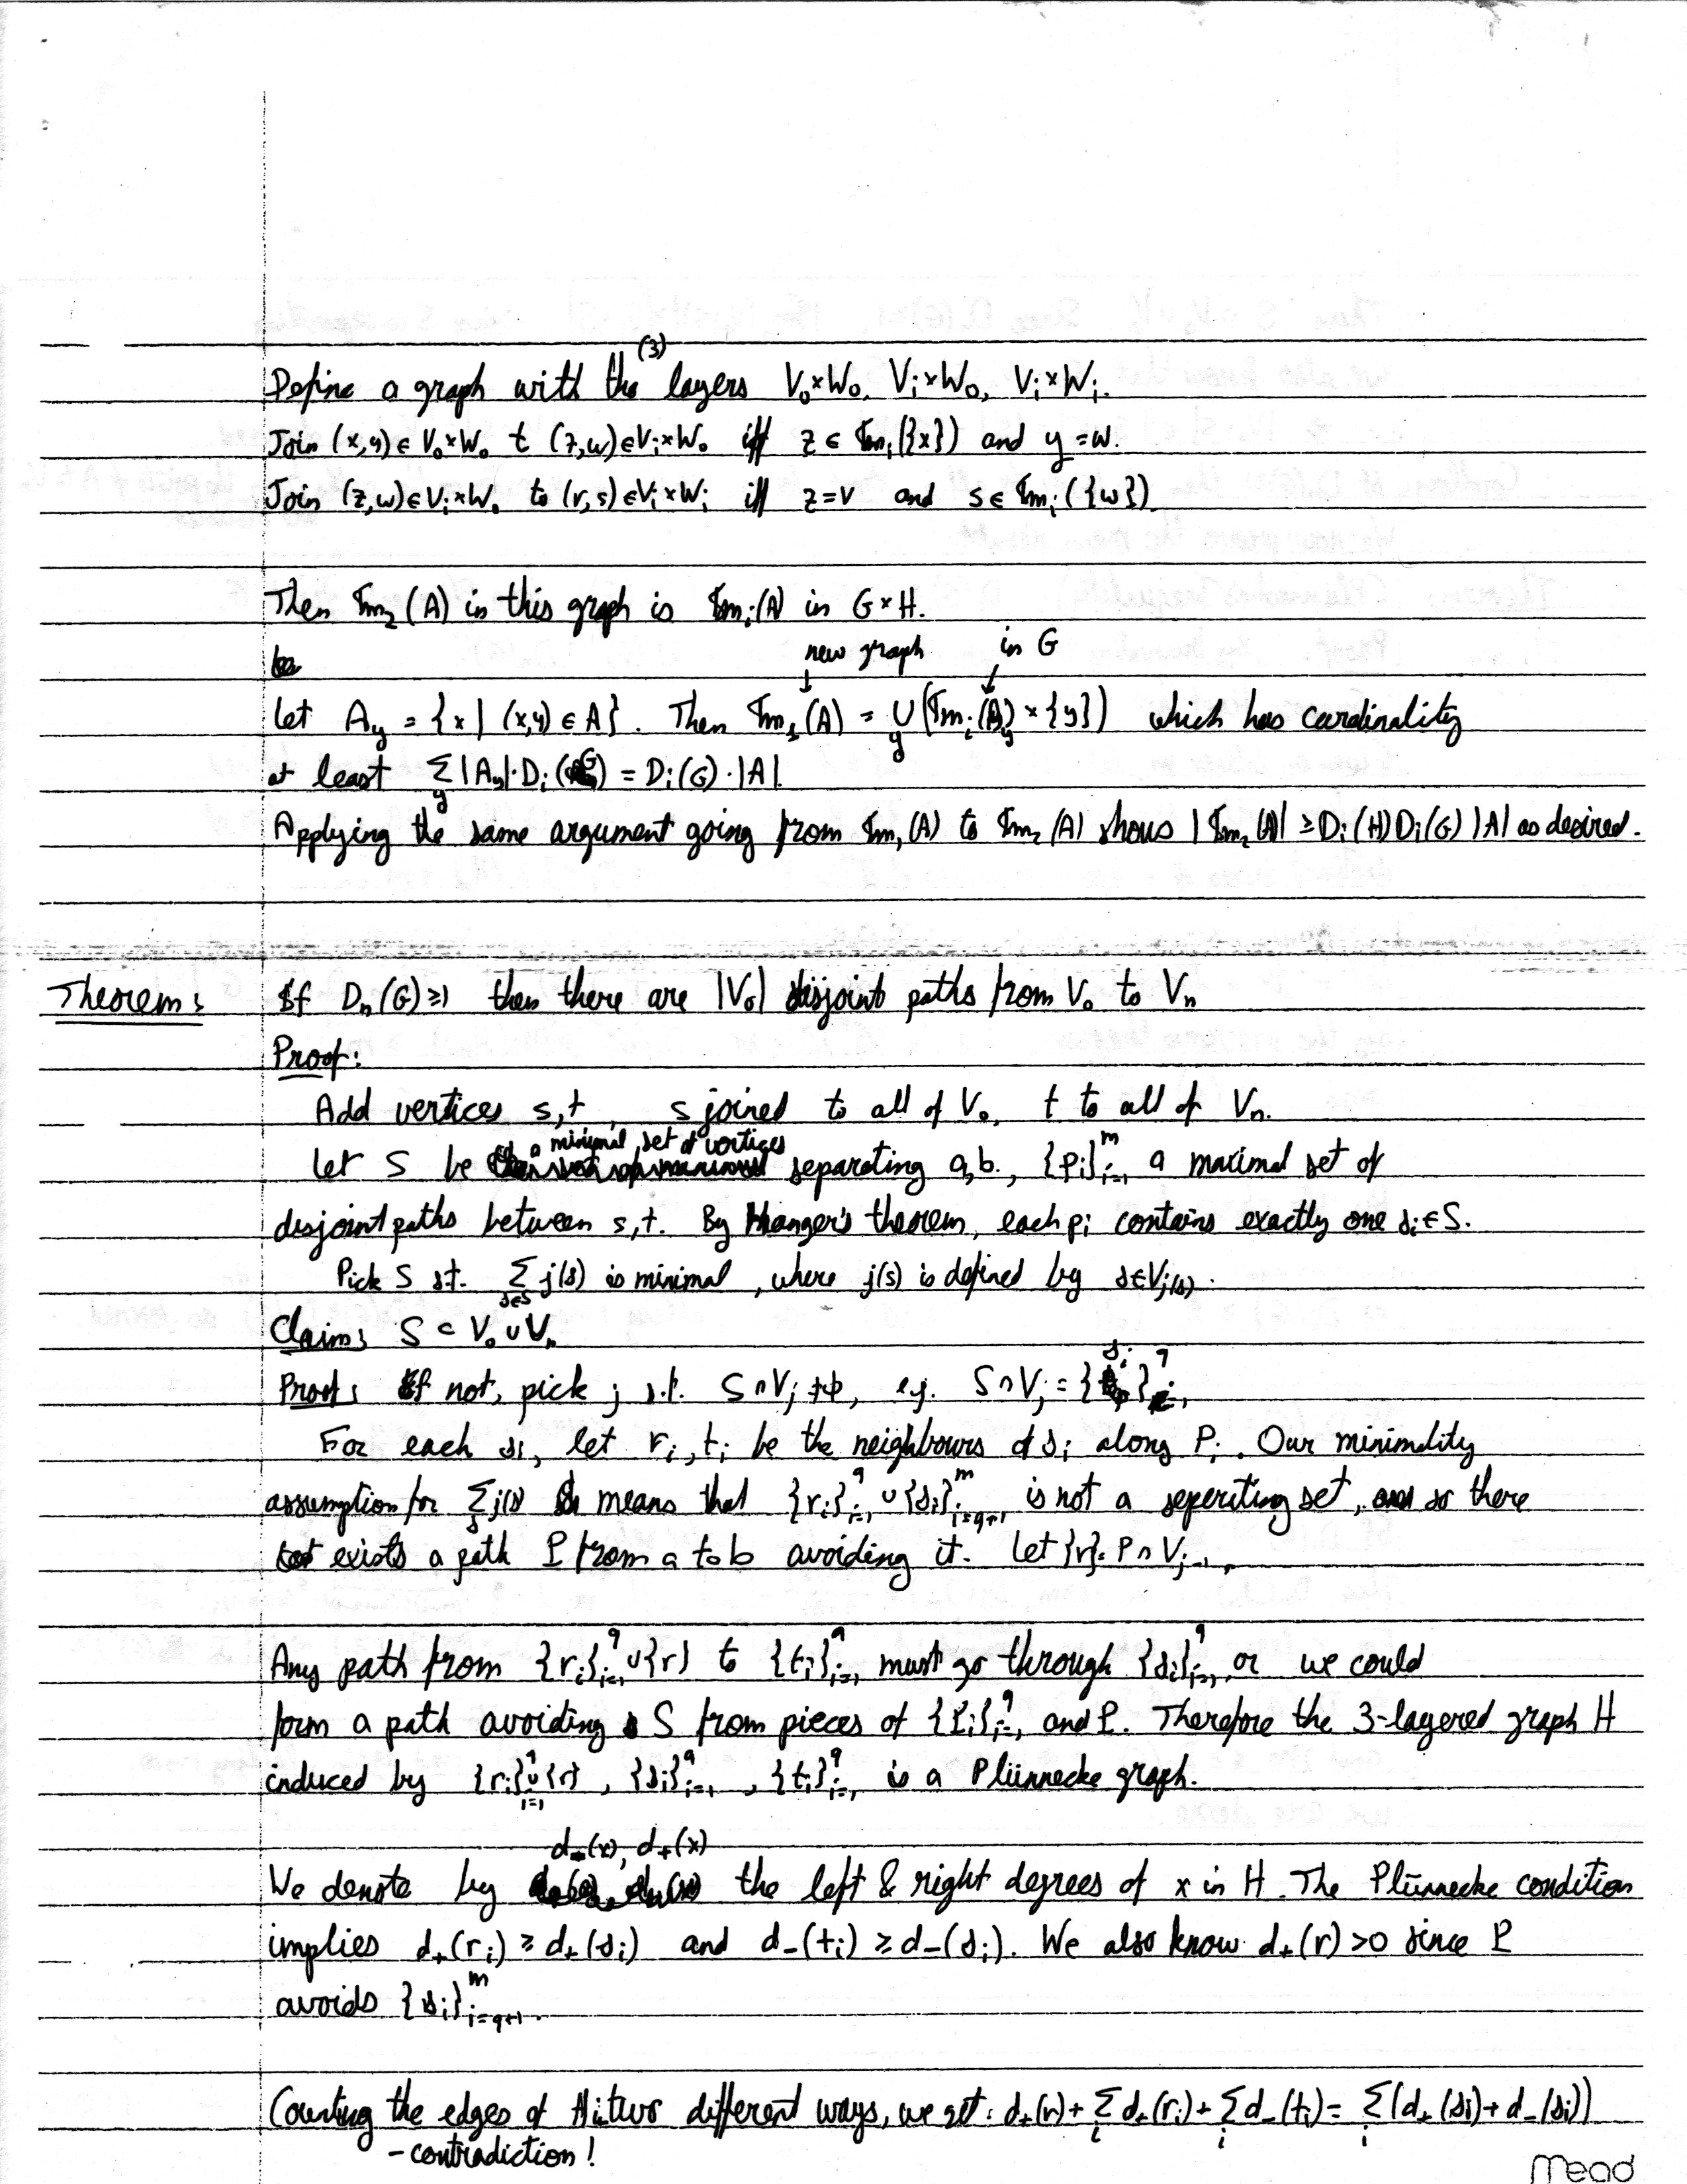 (3)
Define a graph with the layers V₀×W₀, Vᵢ×W₀, Vᵢ×Wᵢ.
Join (x,y) ∈ V₀×W₀ t (z,w) ∈ Vᵢ×W₀ iff z ∈ Imᵢ({x}) and y = w.
Join (z,w) ∈ Vᵢ×W₀ to (r,s) ∈ Vᵢ×Wᵢ iff z = v and s ∈ Imᵢ({w})
Then Im₂(A) in this graph is Imᵢ(A) in G×H.
new graph in G
↓ ↓
Let A_y = {x | (x,y) ∈ A}. Then Im₁(A) = ∪_y (Imᵢ(A_y) × {y}) which has cardinality
at least Σ_y |A_y|·Dᵢ(G) = Dᵢ(G)·|A|.
Applying the same argument going from Im₁(A) to Im₂(A) shows |Im₂(A)| ≥ Dᵢ(H)Dᵢ(G)|A| as desired.
Theorem: If Dₙ(G) ≥ 1 then there are |V₀| disjoint paths from V₀ to Vₙ
Proof:
Add vertices s,t, s joined to all of V₀, t to all of Vₙ.
Let S be a minimal set of vertices separating a,b., {pᵢ}ᵢ₌₁^m a maximal set of
disjoint paths between s,t. By Manger's theorem, each pᵢ contains exactly one sᵢ ∈ S.
Pick S st. Σ_{s∈S} j(s) is minimal, where j(s) is defined by s ∈ V_{j(s)}.
Claim: S ⊂ V₀ ∪ Vₙ
Proof: If not, pick j s.t. S ∩ Vⱼ ≠ ϕ, e.g. S ∩ Vⱼ = {sᵢ}ᵢ₌₁^q
For each sᵢ, let rᵢ, tᵢ be the neighbours of sᵢ along Pᵢ. Our minimality
assumption for Σ_s j(s) means that {rᵢ}ᵢ₌₁^q ∪ {sᵢ}_{i=q+1}^m is not a seperiting set, so there
exists a path P from a to b avoiding it. Let {r} = P ∩ V_{j-1}.
Any path from {rᵢ}ᵢ₌₁^q ∪ {r} to {tᵢ}ᵢ₌₁^q must go through {sᵢ}ᵢ₌₁^q, or we could
form a path avoiding S from pieces of {Pᵢ}ᵢ₌₁^q and P. Therefore the 3-layered graph H
induced by {rᵢ}ᵢ₌₁^q ∪ {r}, {sᵢ}ᵢ₌₁^q, {tᵢ}ᵢ₌₁^q is a Plünnecke graph.
We denote by d₋(x), d₊(x) the left & right degrees of x in H. The Plünnecke condition
implies d₊(rᵢ) ≥ d₊(sᵢ) and d₋(tᵢ) ≥ d₋(sᵢ). We also know d₊(r) > 0 since P
avoids {sᵢ}_{i=q+1}^m.
Counting the edges of H in two different ways, we get: d₊(r) + Σᵢ d₊(rᵢ) + Σᵢ d₋(tᵢ) = Σᵢ (d₊(sᵢ) + d₋(sᵢ))
- contradiction!
Mead